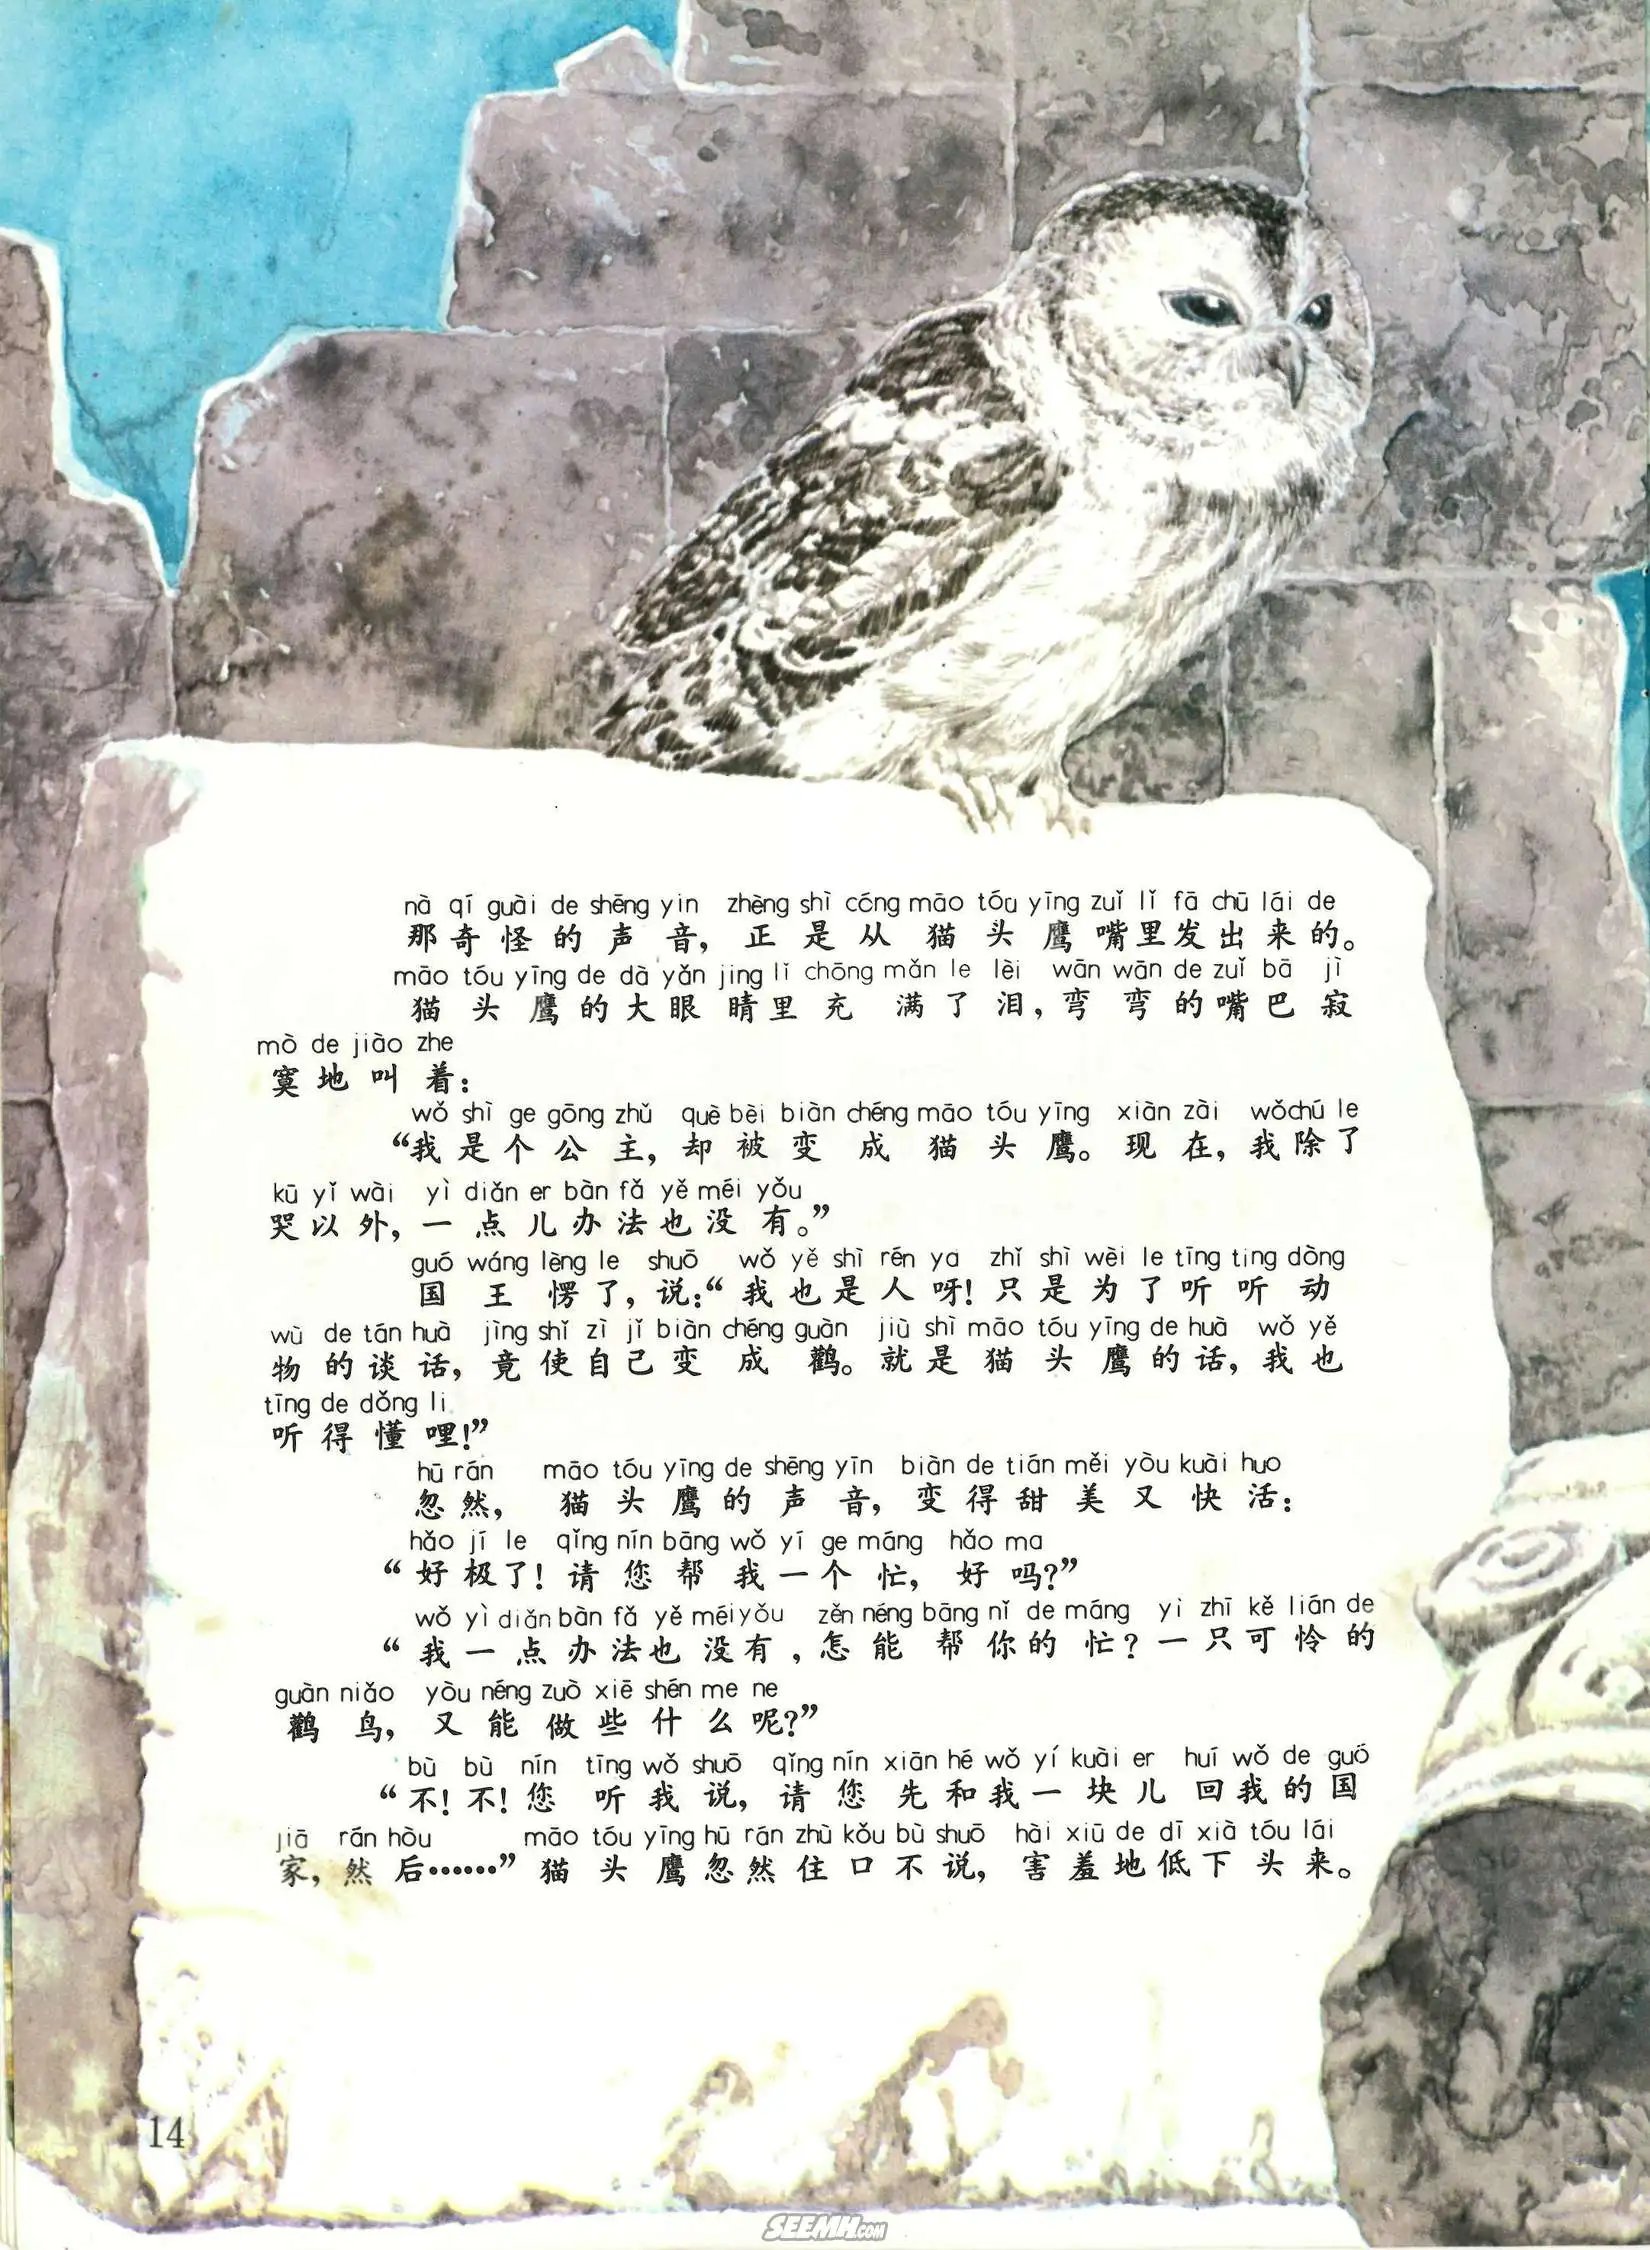 nà qí guài de shēng yin zhèng shì cóng māo tóu yīng zuǐ lǐ fā chū lái de
那奇怪的声音，正是从猫头鹰嘴里发出来的。
māo tóu yīng de dà yǎn jing lǐ chōng mǎn le lèi wān wān de zuǐ bā jì
猫头鹰的大眼睛里充满了泪，弯弯的嘴巴寂
mò de jiào zhe
寞地叫着：
wǒ shì ge gōng zhǔ què bèi biàn chéng māo tóu yīng xiàn zài wǒ chú le
“我是个公主，却被变成猫头鹰。现在，我除了
kū yǐ wài yì diǎn er bàn fǎ yě méi yǒu
哭以外，一点儿办法也没有。”
guó wáng lèng le shuō wǒ yě shì rén ya zhǐ shì wèi le tīng ting dòng
国王愣了，说：“我也是人呀！只是为了听听动
wù de tán huà jìng shǐ zì jǐ biàn chéng guàn jiù shì māo tóu yīng de huà wǒ yě
物的谈话，竟使自己变成鹳。就是猫头鹰的话，我也
tīng de dǒng li
听得懂哩！”
hū rán māo tóu yīng de shēng yīn biàn de tián měi yòu kuài huo
忽然，猫头鹰的声音，变得甜美又快活：
hǎo jí le qǐng nín bāng wǒ yí ge máng hǎo ma
“好极了！请您帮我一个忙，好吗？”
wǒ yì diǎn bàn fǎ yě méi yǒu zěn néng bāng nǐ de máng yì zhī kě lián de
“我一点办法也没有，怎能帮你的忙？一只可怜的
guàn niǎo yòu néng zuò xiē shén me ne
鹳鸟，又能做些什么呢？”
bù bù nín tīng wǒ shuō qǐng nín xiān hé wǒ yí kuài er huí wǒ de guó
“不！不！您听我说，请您先和我一块儿回我的国
jiā rán hòu māo tóu yīng hū rán zhù kǒu bù shuō hài xiū de dī xià tóu lái
家，然后……”猫头鹰忽然住口不说，害羞地低下头来。
14
SEEMH.COM